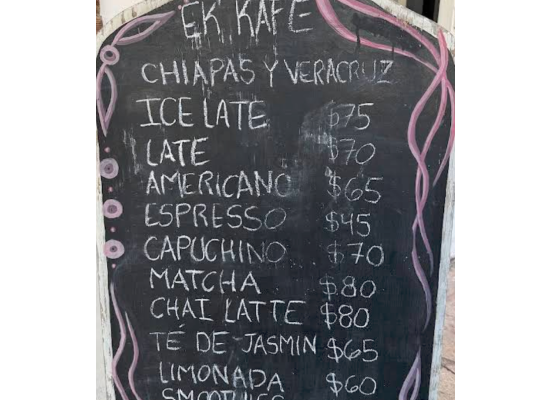 EK KAFE
CHIAPAS Y VERACRUZ
ICE LATE $75
LATE $70
AMERICANO $65
ESPRESSO $45
CAPUCHINO $70
MATCHA $80
CHAI LATTE $80
TÉ DE JASMIN $65
LIMONADA $60